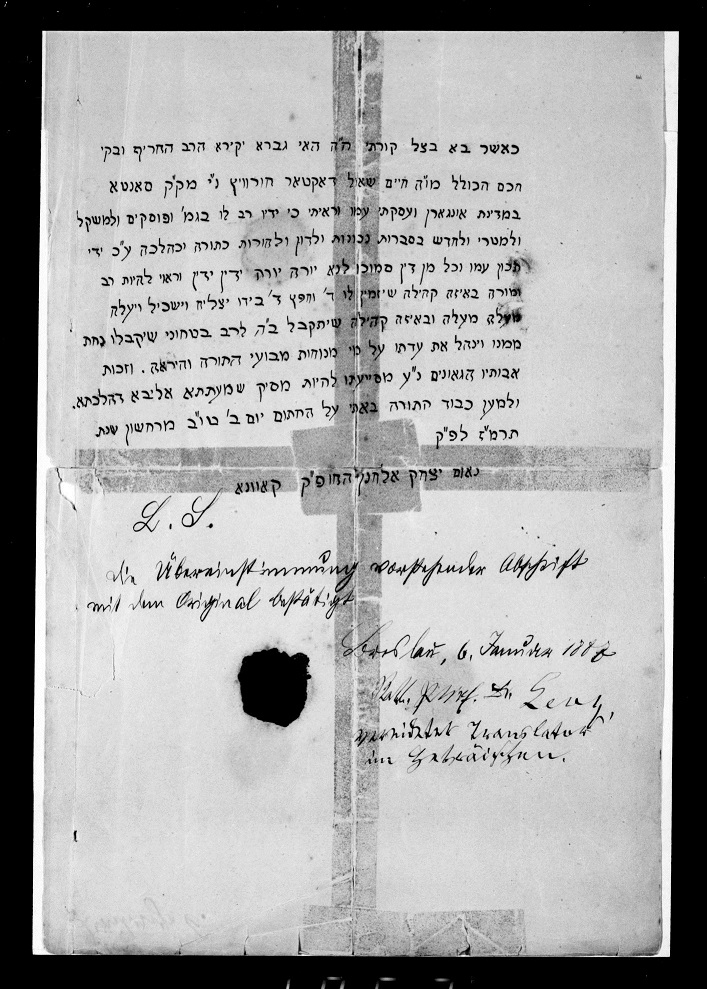 כאשר בא בצל קורתי ה"ה האי גברא יקירא הרב החריף ובקי
חכם הכולל מו"ה חיים שאול דאקטאר הורוויץ נ"י מק"ק סאנטא
במדינת אונגארן ועסקתי עמו וראיתי כי ידיו רב לו בגמ' ופוסקים ולמשקל
ולמטרי ולחדש בסברות נכונות ולדון ולהורות כתורה וכהלכה ע"כ ידי
תכון עמו וכל מן דין סמוכו לנא יורה יורה ידין ידין וראוי להיות רב
ומורה באיזה קהילה שיזמין לו ד' וחפץ ד' בידו יצליח וישכיל ויעלה
מעלה מעלה ובאיזה קהילה שיתקבל ב"ה לרב בטחוני שיקבלו נחת
ממנו וינהל את עדתו על מי מנוחות מבועי התורה והיראה . וזכות
אבותיו הגאונים נ"ע מסייעתו להיות מסיק שמעתתא אליבא דהלכתא.
ולמען כבוד התורה באתי על החתום יום ב' טו"ב מרחשון שנת
תרמ"ז לפ"ק
נאום יצחק אלחנן החופ"ק קאוונא
L. S.
Die Übereinstimmung vorstehender Abschrift
mit dem Original bestätigt
Breslau, 6. Januar 1887
Dr. Levy,
vereideter Translator
im Hebräischen.